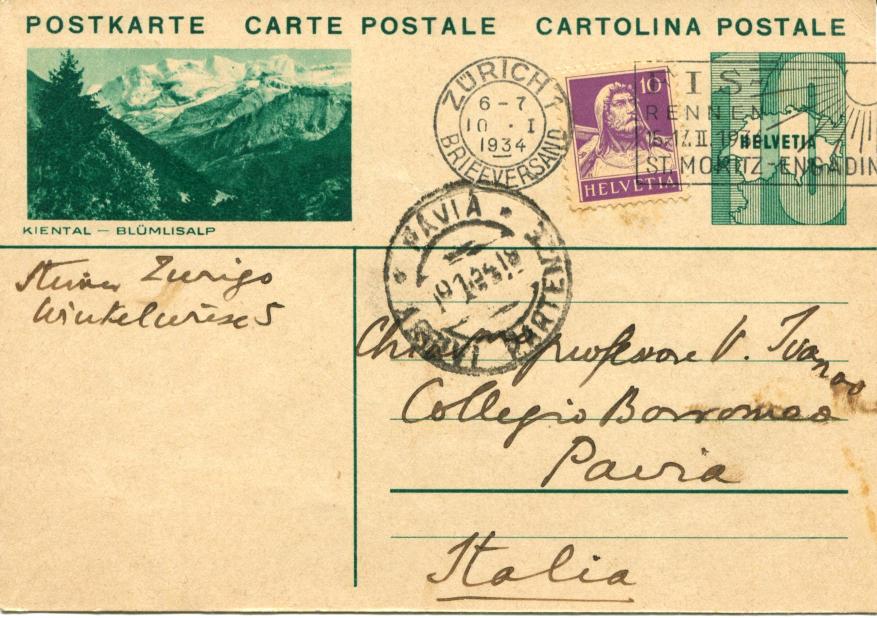 POSTKARTE CARTE POSTALE CARTOLINA POSTALE
KIENTAL — BLÜMLISALP
ZÜRICH 7
6-7
10 · I
1934
BRIEFVERSAND
10
HELVETIA
RENNEN
ST. MORITZ-ENGADIN
HELVETIA
PAVIA
PARTENZE
Zurigo
Chiar professore V. Ivanov
Collegio Borromeo
Pavia
Italia